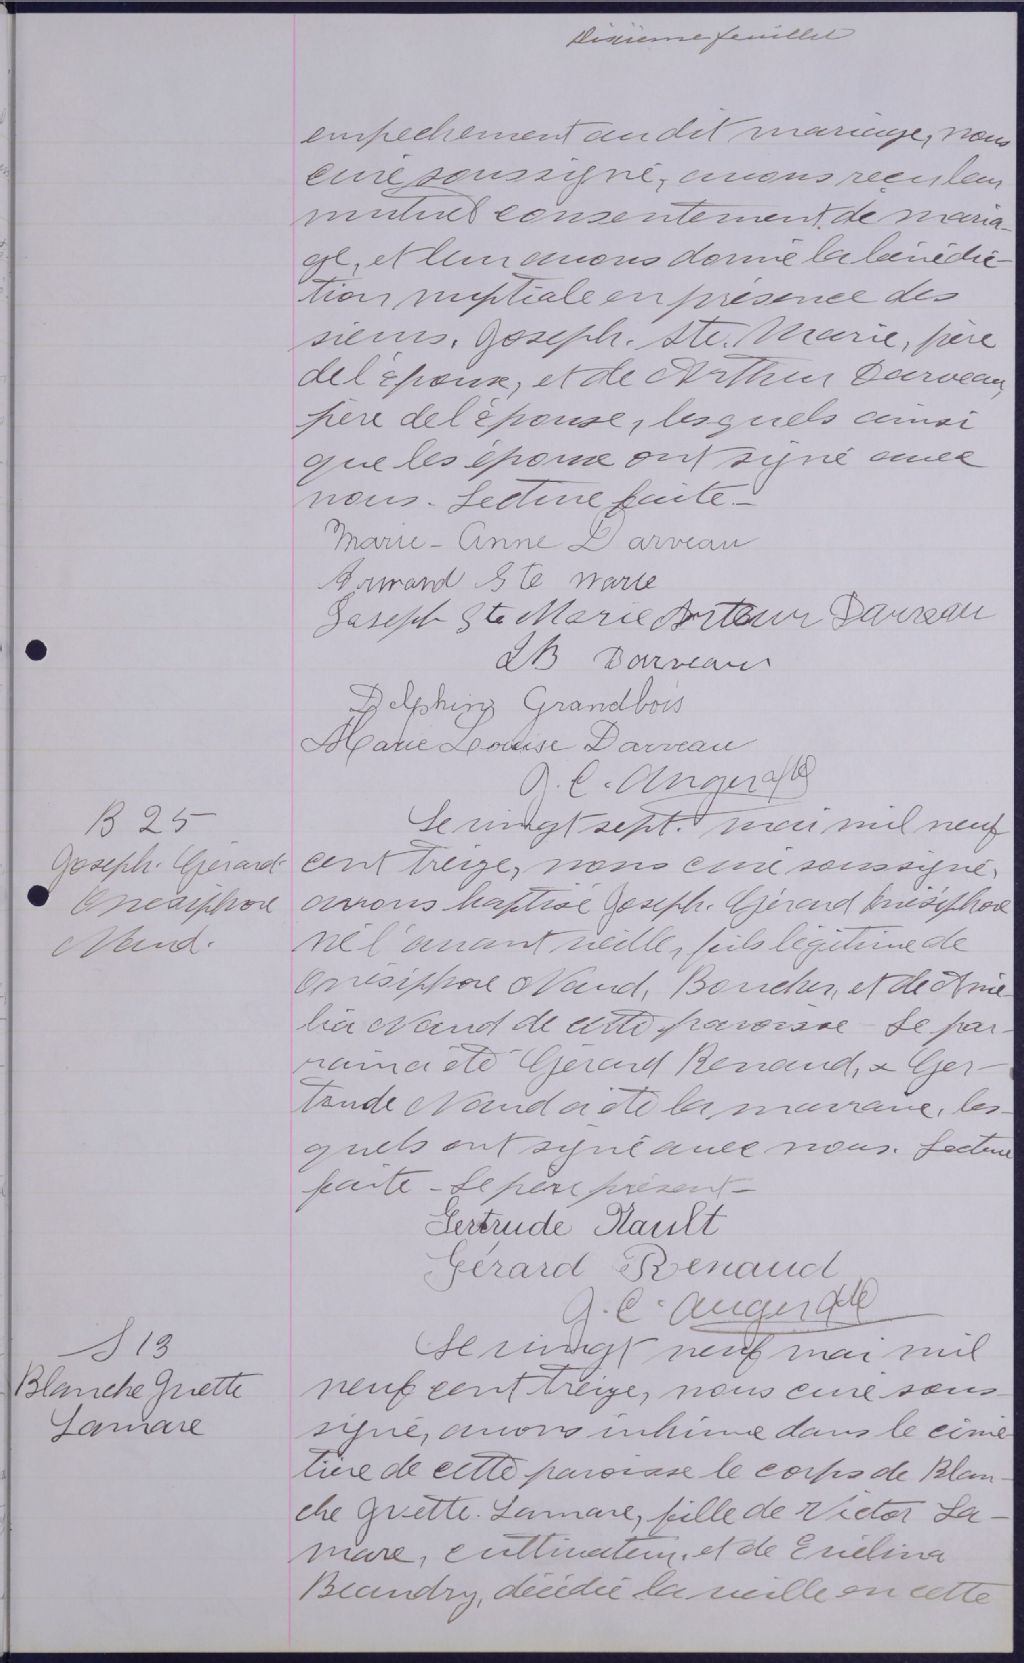 Dixième feuillet
empechement au dit mariage, nous
curé soussigné, avons reçu leur
mutuel consentement de maria-
ge, et leur avons donné la bénédic-
tion nuptiale en présence des
sieurs, Joseph. Ste. Marie, père
de l'époux, et de Arthur Darveau,
père de l'épouse, lesquels ainsi
que les époux ont signé avec
nous. Lecture faite.-
Marie-Anne Darveau
Armand Ste Marie
Joseph Ste Marie Arthur Darveau
LB Darveau
Delphine Grandbois
Marie Louise Darveau
J. C. Auger
B 25
Joseph. Gérard-
Onesiphore
Naud.
Le vingt sept. mai mil neuf
cent treize, nous curé soussigné,
avons baptisé Joseph. Gérard Onésiphore
né l'avant veille, fils légitime de
Onésiphore Naud, Boucher, et de Amé-
lia Naud de cette paroisse - Le par-
rain a été Gérard Renaud, & Ger-
trude Naud a été la marraine, les-
quels ont signé avec nous. Lecture
faite - Le père présent -
Gertrude Nault
Gérard Renaud
J. C. Auger
S 13
Blanche Yvette
Lamare
Le vingt neuf mai mil
neuf cent treize, nous curé sous-
signé, avons inhumé dans le cime-
tière de cette paroisse le corps de Blan-
che Yvette. Lamare, fille de Victor La-
mare, cultivateur, et de Evélina
Beaudry, décédée la veille en cette